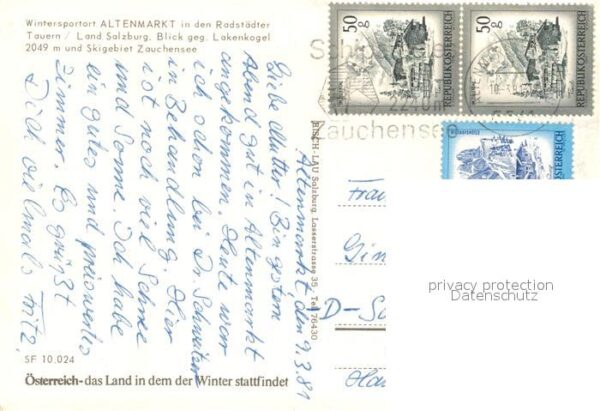 Wintersportort ALTENMARKT in den Radstädter
Tauern / Land Salzburg. Blick geg. Lakenkogel
2049 m und Skigebiet Zauchensee
Altenmarkt, den 9.3.81
Liebe Mutter! Bin gestern
Abend gut in Altenmarkt
angekommen. Heute war
ich schon bei Dr. Schweiern
in Behandlung. Hier
ist noch viel Schnee
und Sonne. Ich habe
ein gutes und preiswertes
Zimmer. Es grüßt
Dich vielmals Fritz
SF 10.024
Österreich - das Land in dem der Winter stattfindet
LAU Salzburg, Lasserstrasse 35 - Tel. 76430
50 g
REPUBLIK ÖSTERREICH
50 g
REPUBLIK ÖSTERREICH
ÖSTERREICH
2270 m
Zauchensee
Frau
D-
privacy protection
Datenschutz